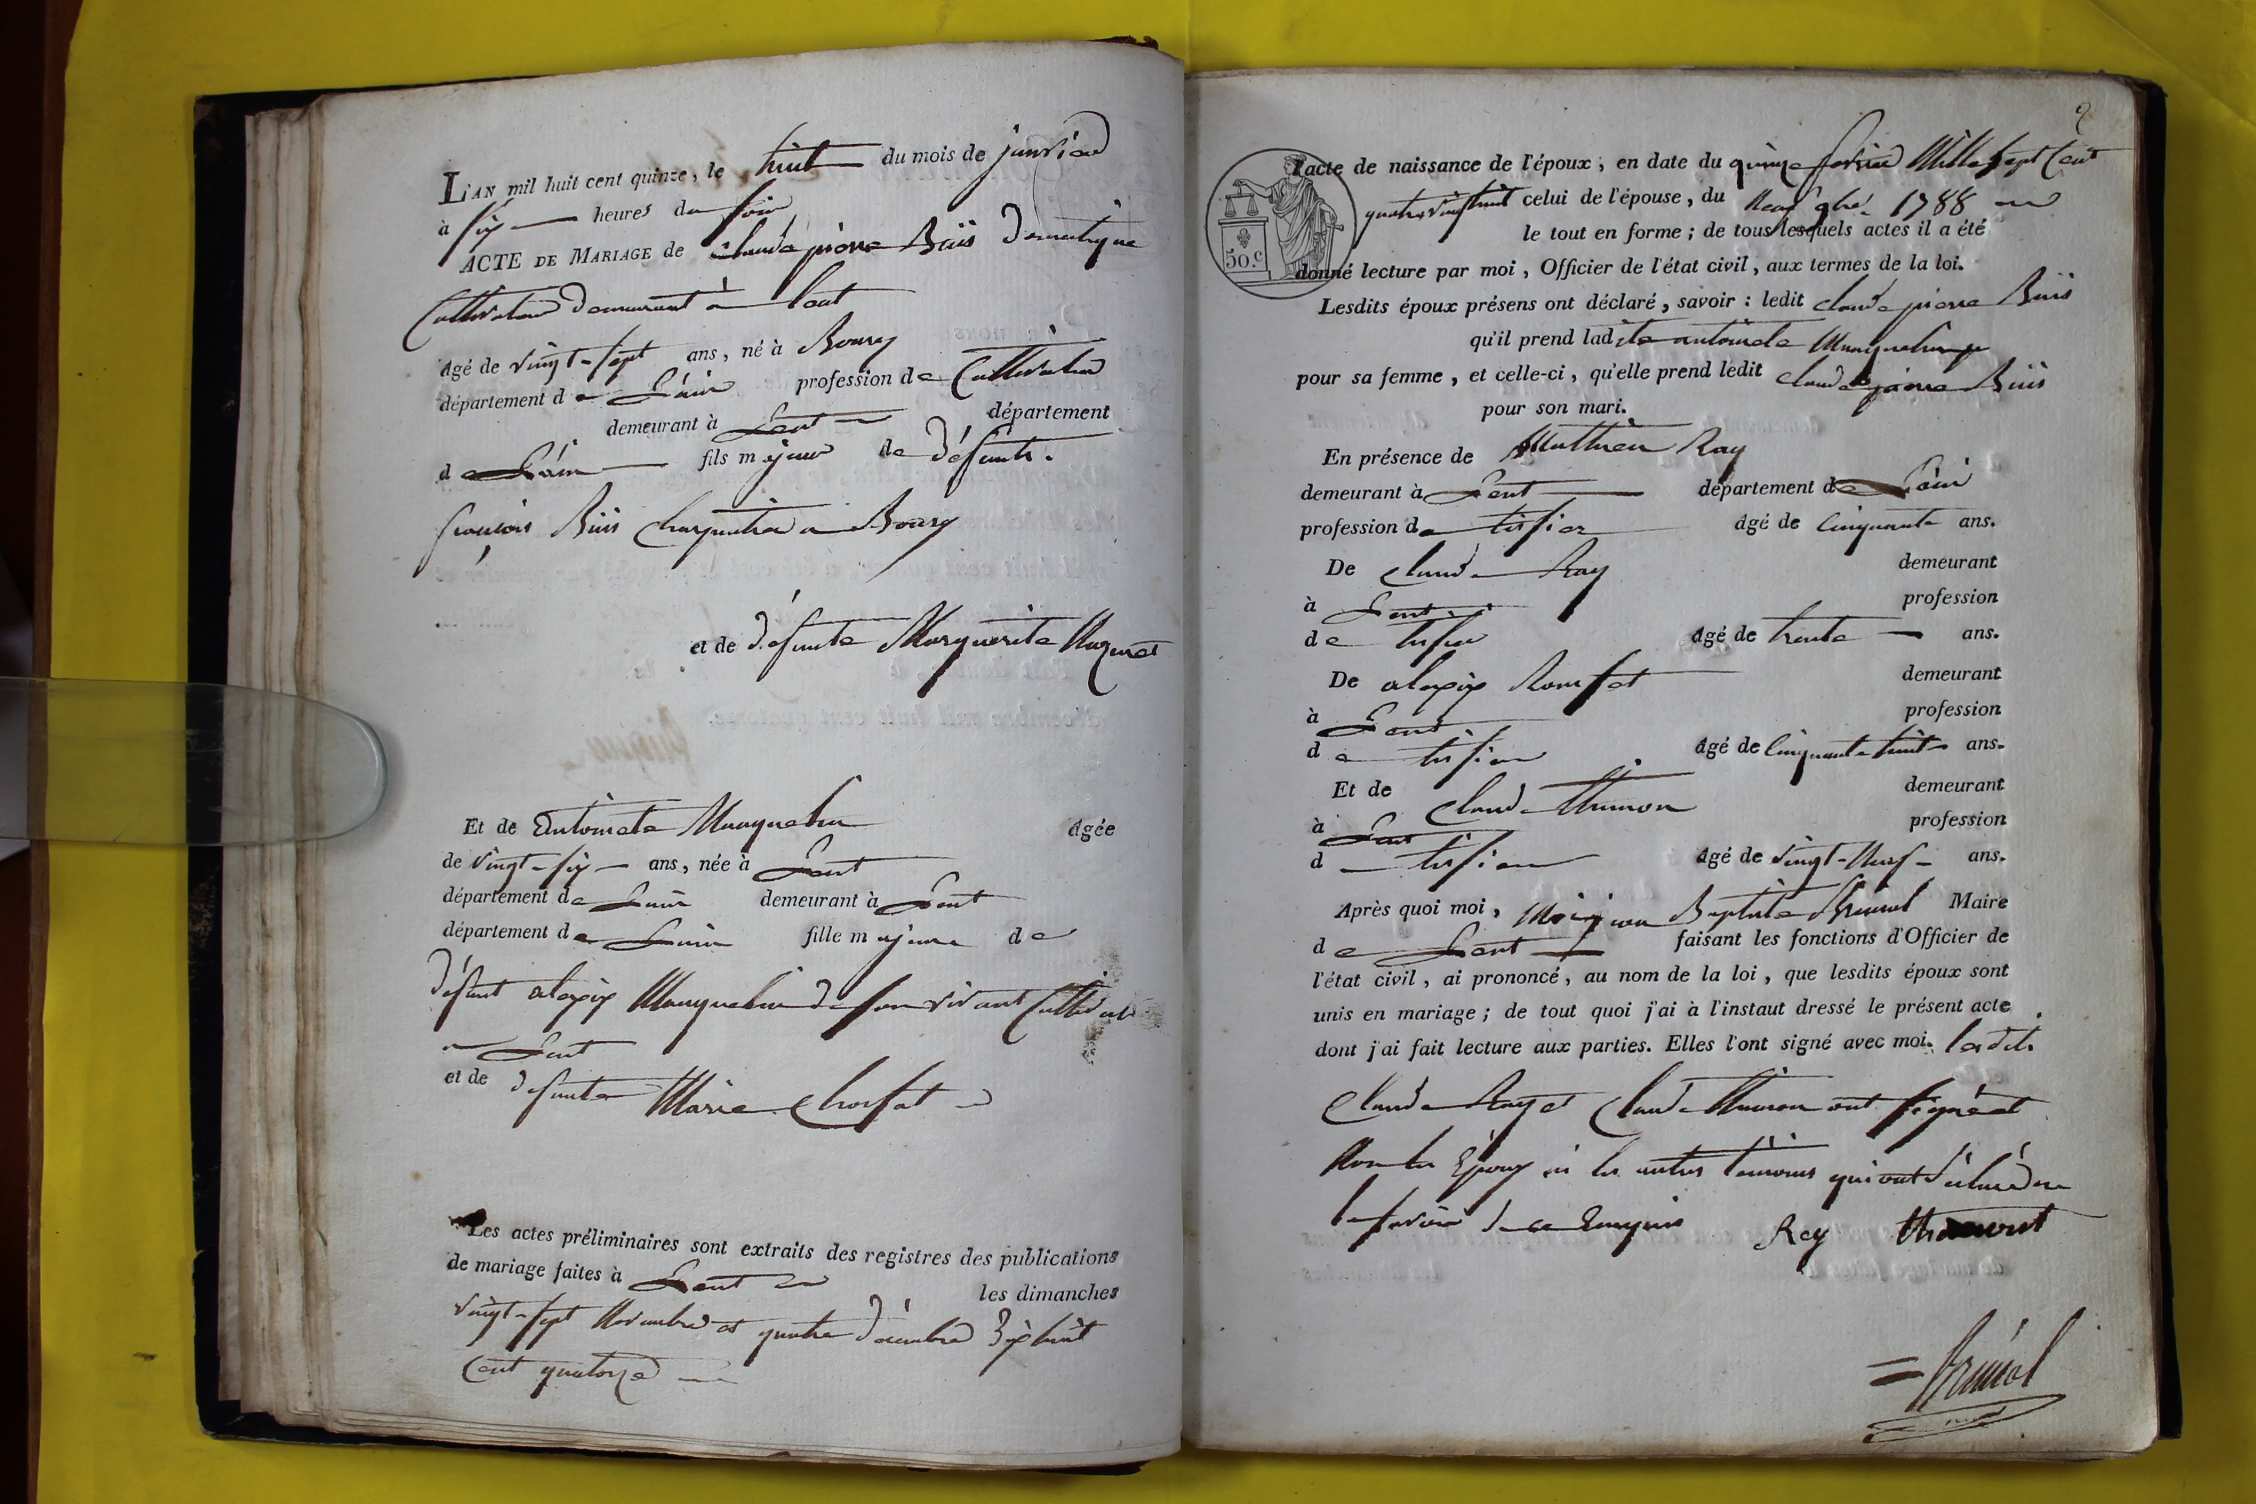 L'AN mil huit cent quinze, le huit du mois de janvier
à six heures du soir
ACTE DE MARIAGE de Claude pierre Buis domestique
Cultivateur demeurant à Lent
âgé de vingt-sept ans, né à Bourg
département de L'ain profession de Cultivateur
demeurant à Lent département
de L'ain fils majeur de défunts.
françois Buis Charpentier a Bourg
et de défunte Marguerite
Et de Antoinete Manquelin âgée
de vingt-six ans, née à Lent
département de L'ain demeurant à Lent
département de L'ain fille majeure de
défunt alexix Manquelin de son vivant Cultivat
a Lent
et de défunte Marie Chossat
Les actes préliminaires sont extraits des registres des publications
de mariage faites à Lent les dimanches
vingt-sept Novembre et quatre décembre dix huit
Cent quatorze
2
L'acte de naissance de l'époux, en date du quinze fevrier Mille sept Cent
quatre vingt huit celui de l'épouse, du Neuf 9bre 1788
le tout en forme; de tous lesquels actes il a été
50.c
donné lecture par moi, Officier de l'état civil, aux termes de la loi.
Lesdits époux présens ont déclaré, savoir: ledit Claude pierre Buis
qu'il prend ladite antoinete Manquelin
pour sa femme, et celle-ci, qu'elle prend ledit Claude pierre Buis
pour son mari.
En présence de Mathieu Ray
demeurant à Lent département de L'ain
profession de tissier âgé de Cinquante ans.
De Claude Ray demeurant
à Lent profession
de tissier âgé de trente ans.
De alexix Rousset demeurant
à Lent profession
de tissier âgé de Cinquante huit ans.
Et de Claude Thevenon demeurant
à Lent profession
d tissier âgé de vingt-Neuf ans.
Après quoi moi, Baptiste Maire
de Lent faisant les fonctions d'Officier de
l'état civil, ai prononcé, au nom de la loi, que lesdits époux sont
unis en mariage; de tout quoi j'ai à l'instaut dressé le présent acte
dont j'ai fait lecture aux parties. Elles l'ont signé avec moi. lesdits
Claude Ray et Claude Thevenon ont signé et
Non les Epoux ni les autres témoins qui ont déclaré ne
le savoir de ce Enquis Rey